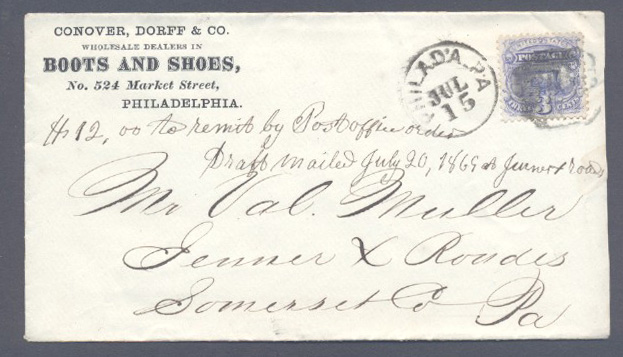 CONOVER, DORFF & CO.
WHOLESALE DEALERS IN
BOOTS AND SHOES,
No. 524 Market Street,
PHILADELPHIA.
PHILAD'A. PA
JUL
15
POSTAGE
3
$12,00 to remit by Post office order
Draft mailed July 20, 1869 at Jenner X Roads
Mr Val. Muller
Jenner X Roades
Somerset Co Pa